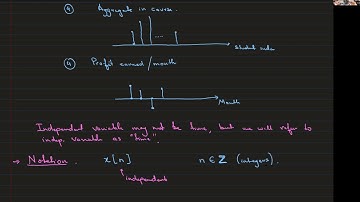 ④ Aggregate in course.
....
Student index
④ Profit earned/month
Month
Independent variable may not be time, but we will refer to
indep. variable as "time".
→ Notation. x[n] n ∈ Z (integers).
↑
independent